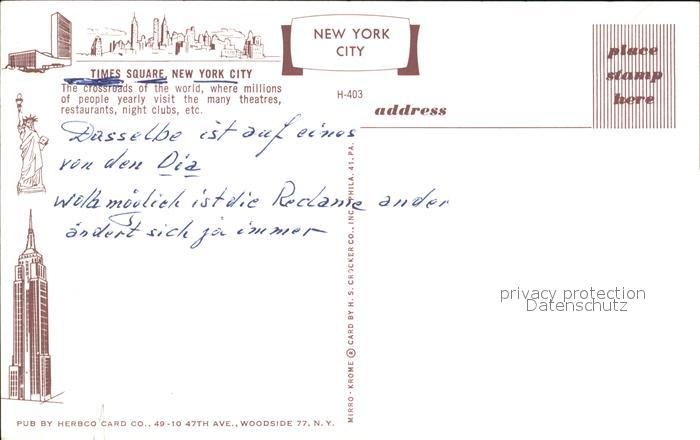 NEW YORK
CITY
place
stamp
here
TIMES SQUARE, NEW YORK CITY
The crossroads of the world, where millions
of people yearly visit the many theatres,
restaurants, night clubs, etc.
H-403
address
Dasselbe ist auf eines
von den Dia
wohl möglich ist die Reclame ander
ändert sich ja immer
MIRRO-KROME ® CARD BY H. S. CROCKER CO., INC. PHILA. 41, PA.
privacy protection
Datenschutz
PUB BY HERBCO CARD CO., 49-10 47TH AVE., WOODSIDE 77, N.Y.